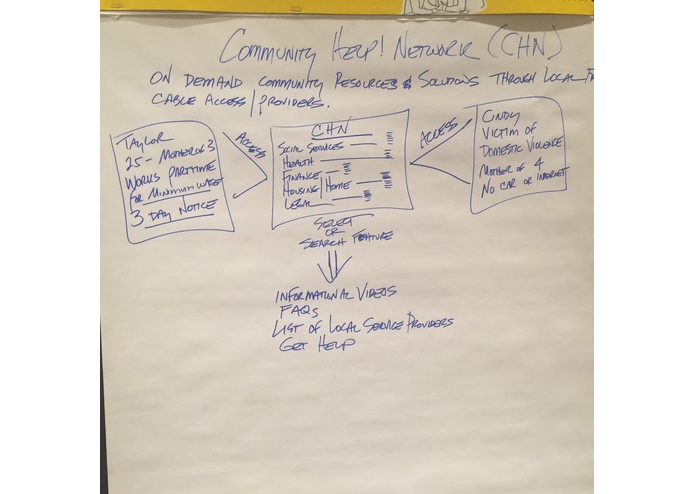 COMMUNITY HELP! NETWORK (CHN)
ON DEMAND COMMUNITY RESOURCES & SOLUTIONS THROUGH LOCAL
CABLE ACCESS/PROVIDERS.
TAYLOR
25 - MOTHER OF 3
WORKS PARTTIME
FOR MINIMUM WAGE
3 DAY NOTICE
ACCESS
CHN
SOCIAL SERVICES
HEALTH
FINANCE
HOUSING/HOME
LEGAL
ACCESS
CINDY
VICTIM OF
DOMESTIC VIOLENCE
MOTHER OF 4
NO CAR OR INTERNET
SELECT
OR
SEARCH FEATURE
INFORMATIONAL VIDEOS
FAQs
LIST OF LOCAL SERVICE PROVIDERS
GET HELP